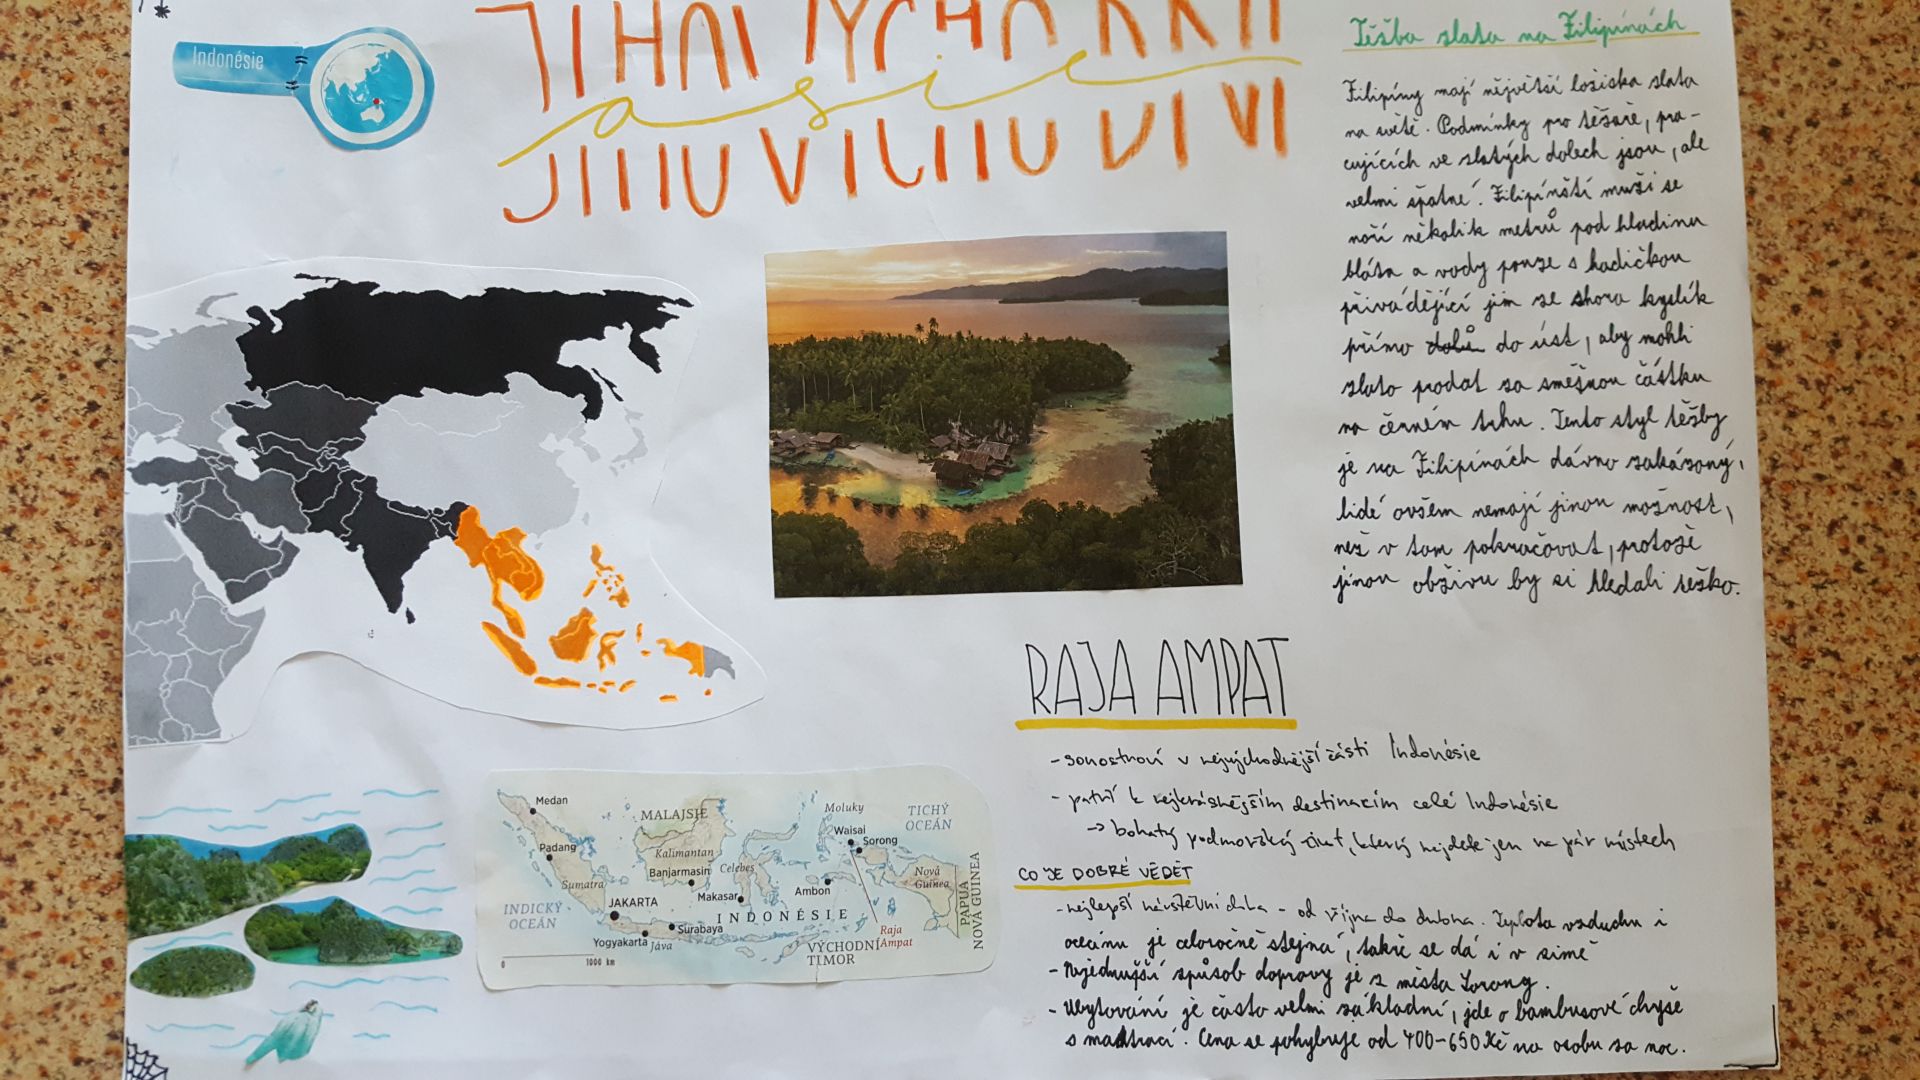 Indonésie
JIHOVÝCHODNÍ
asie
Těžba zlata na Filipínách
Filipíny mají největší ložiska zlata
na světě. Podmínky pro těžaře, pra-
cujících ve zlatých dolech jsou, ale
velmi špatné. Filipínští muži se
noří několik metrů pod hladinu
bláta a vody pouze s hadičkou
přivádějící jim ze shora kyslík
přímo do úst, aby mohli
zlato prodat za směšnou částku
na černém trhu. Tento styl těžby
je na Filipínách dávno zakázaný,
lidé ovšem nemají jinou možnost,
než v tom pokračovat, protože
jinou obživu by si hledali těžko.
RAJA AMPAT
- souostroví v nejvýchodnější části Indonésie
- patří k nejkrásnějším destinacím celé Indonésie
-> bohatý podmořský život, který najdete jen na pár místech
CO JE DOBRÉ VĚDĚT
- nejlepší návštěvní doba - od října do dubna. Teplota vzduchu i
oceánu je celoročně stejná, takže se dá i v zimě
- Nejednušší způsob dopravy je z města Sorong.
- Ubytování je často velmi základní, jde o bambusové chyše
s matrací. Cena se pohybuje od 400-650 Kč na osobu za noc.
Medan
MALAJSIE
Moluky
TICHÝ
OCEÁN
Waisai
Sorong
Padang
Kalimantan
Celebes
Banjarmasin
Sumatra
Makasar
Ambon
Nová
Guinea
PAPUA
NOVÁ GUINEA
JAKARTA
INDICKÝ
OCEÁN
INDONÉSIE
Surabaya
Yogyakarta
Jáva
Raja
Ampat
VÝCHODNÍ
TIMOR
0 1000 km